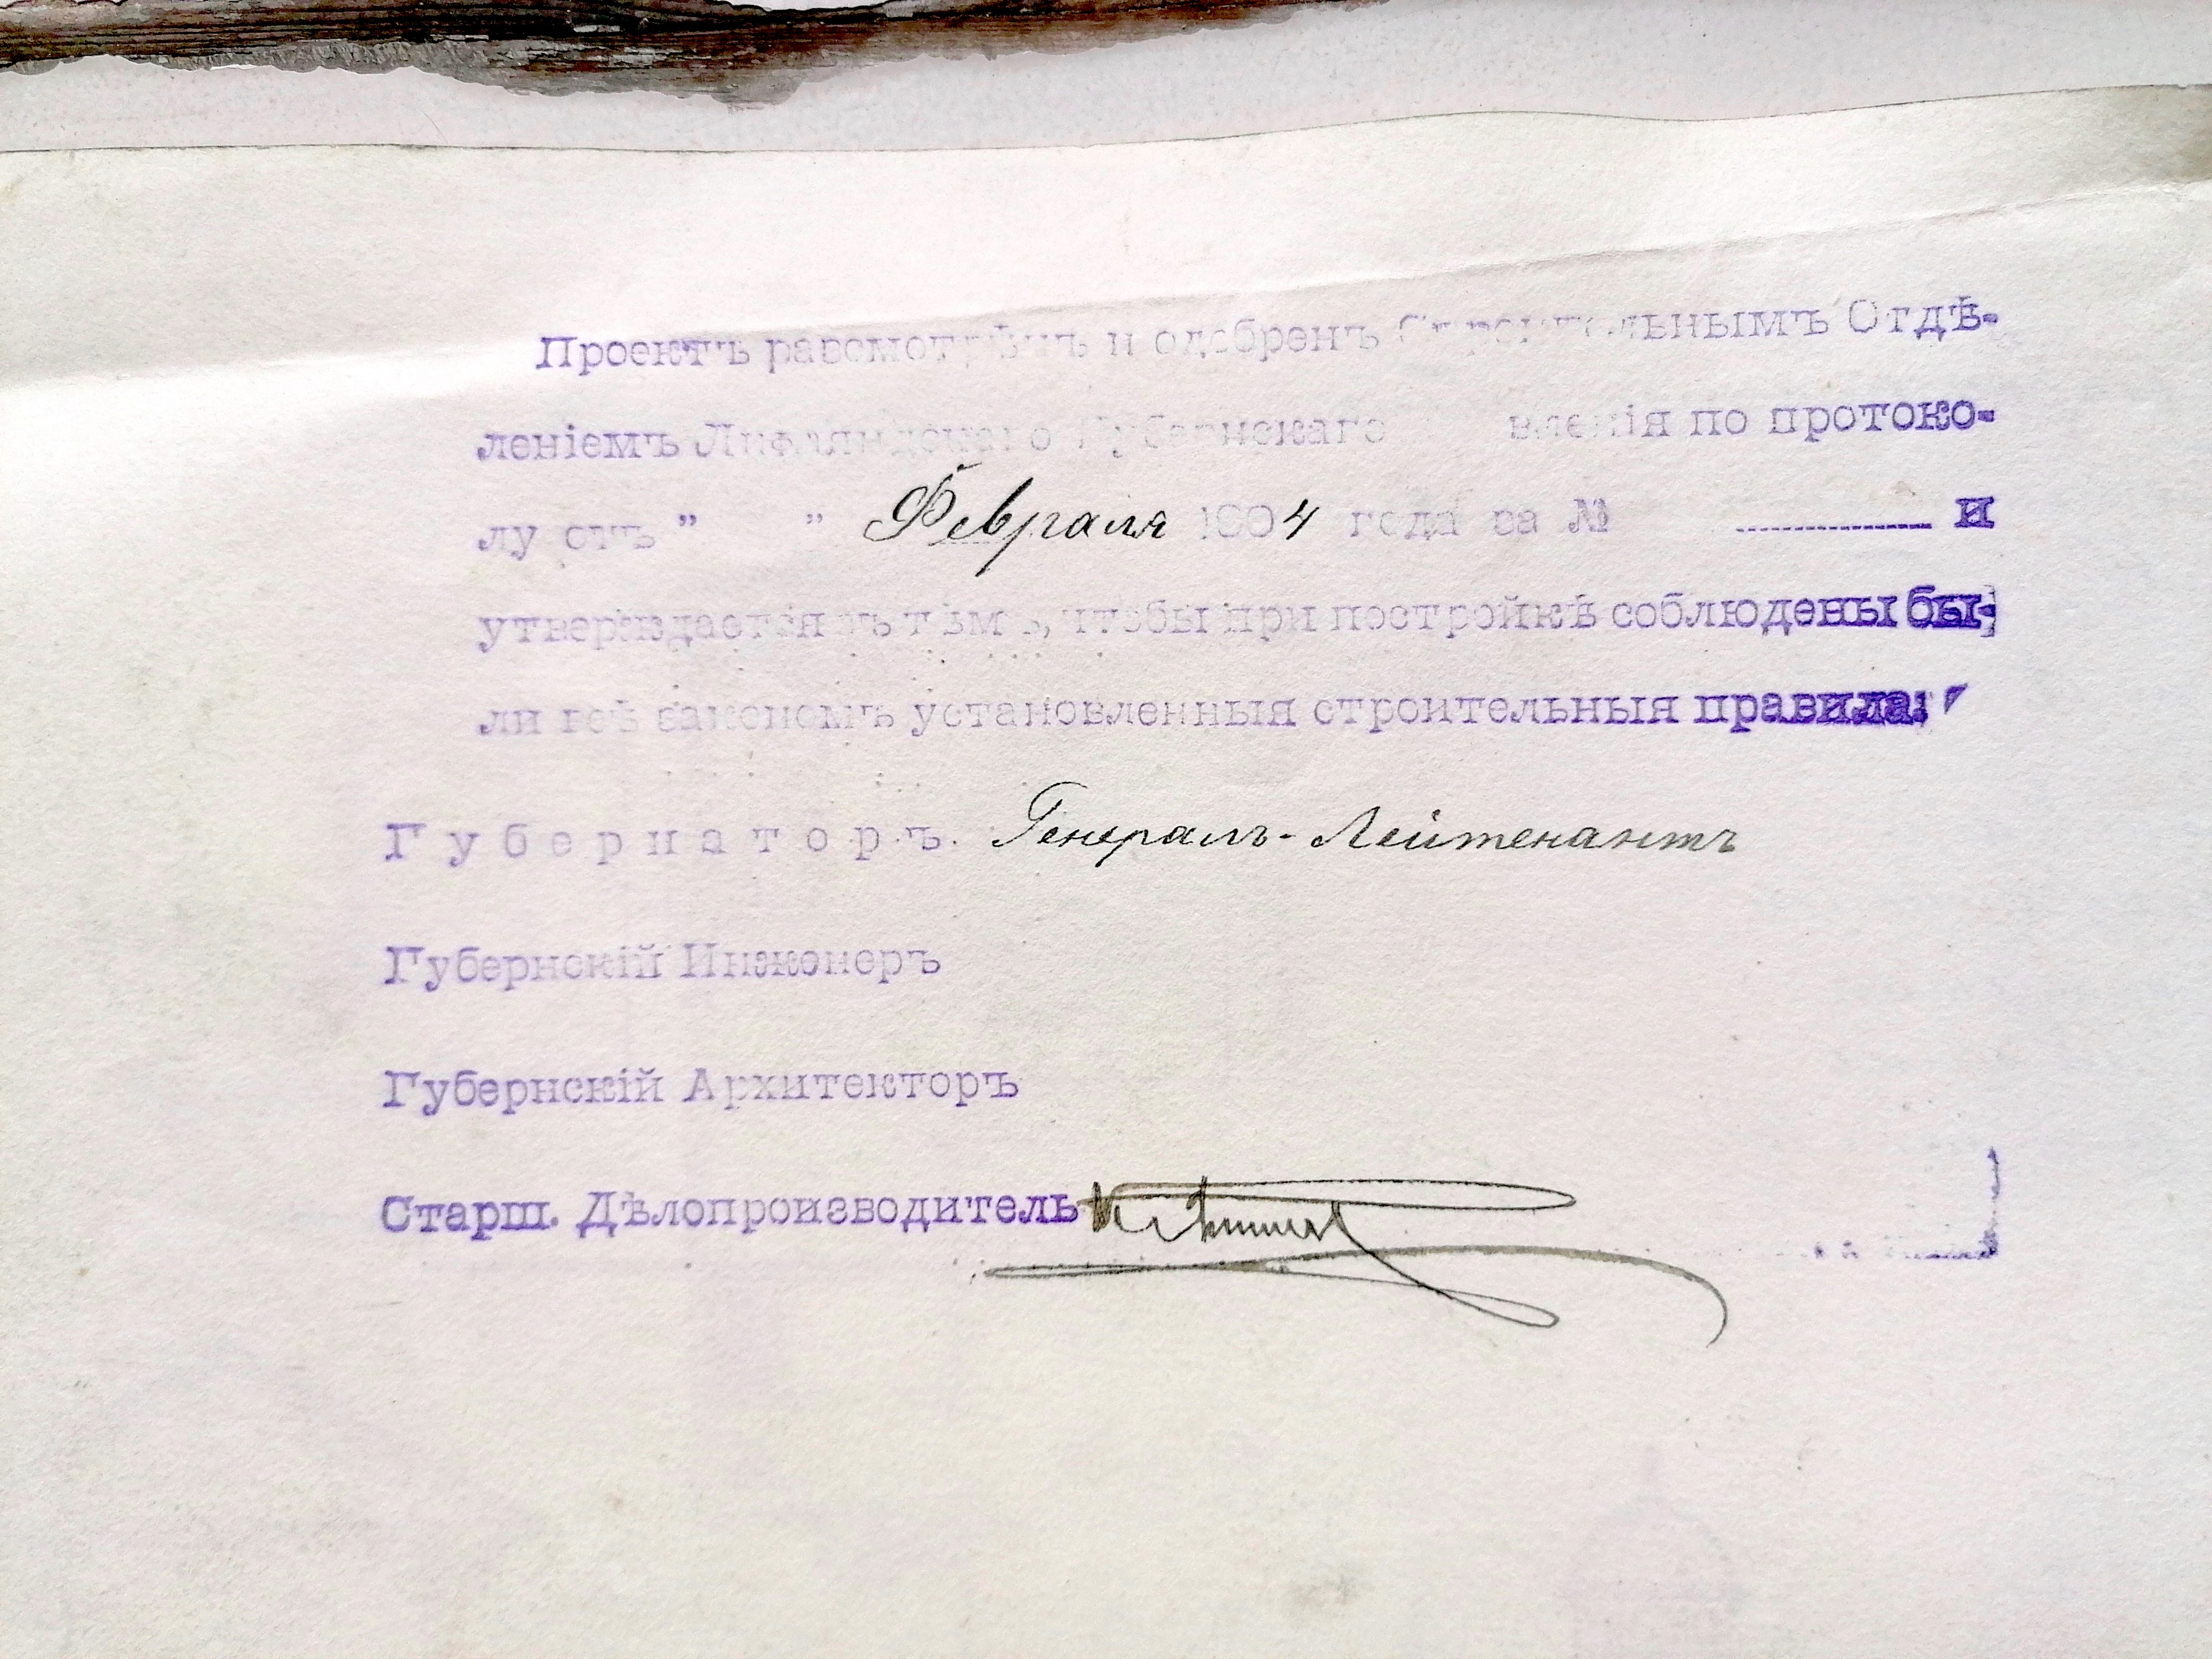 Проектъ разсмотрѣнъ и одобренъ Строительнымъ Отдѣ-
леніемъ Лифляндскаго Губернскаго вленія по протоко-
лу отъ " " Февраля 1904 года за № и
утверждается съ тѣмъ, чтобы при постройкѣ соблюдены бы-
ли всѣ закономъ установленныя строительныя правила.
Губернаторъ. Генералъ-Лейтенантъ
Губернскій Инженеръ
Губернскій Архитекторъ
Старш. Дѣлопроизводитель